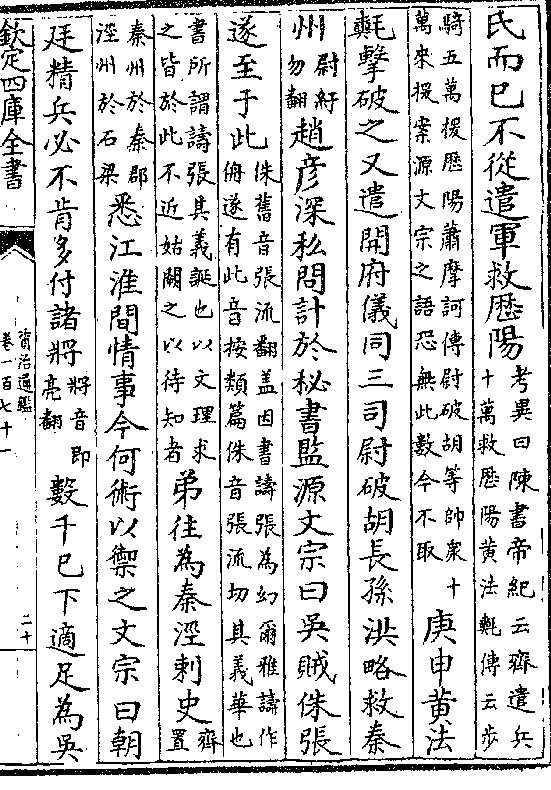 氏而已不從遣軍救歷陽考異曰陳書帝紀云齊遣兵十萬救歷陽黄法𣰰傳云步
騎五萬援歷陽蕭摩訶傳尉破胡等帥衆十萬來援案源文宗之語恐無此數今不取庚申黄法
𣰰擊破之又遣開府儀同三司尉破胡長孫洪略救秦
州尉紆勿翻趙彦深私問計於秘書監源文宗曰吳賊侏張
遂至于此侏舊音張流翻盖因書譸張為幻爾雅譸作侜遂有此音按類篇侏音張流切其義華也
書所謂譸張其義誕也以文理求之皆於此不近姑闕之以待知者弟往為秦涇刺史齊置
秦州於秦郡涇州於石梁悉江淮間情事今何術以禦之文宗曰朝
廷精兵必不肯多付諸將將音即亮翻數千已下適足為吳
欽定四庫全書
資治通鑑
卷一百七十一
二十